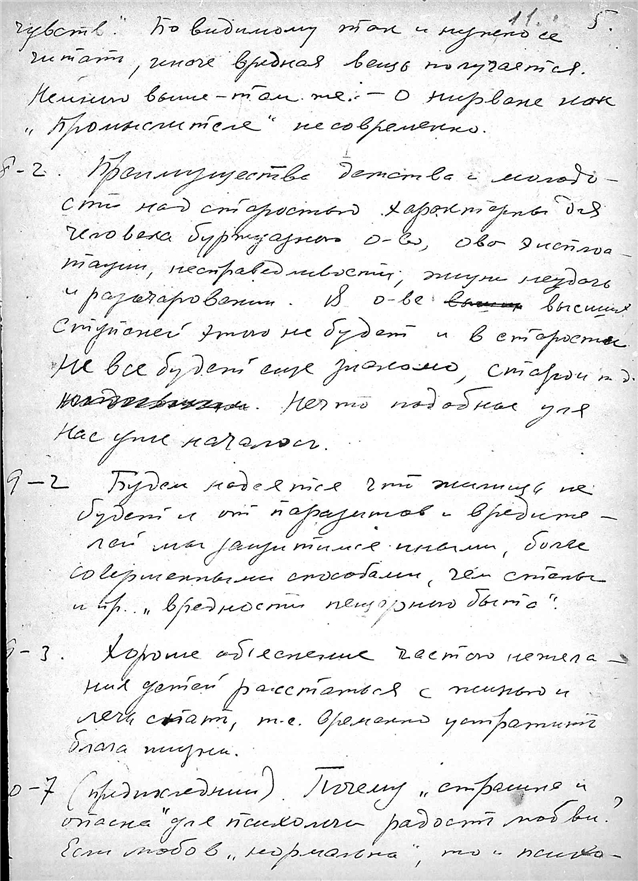 11. 5.
чувств". По видимому так и нужно ее
читать, иначе вредная вещь получается.
Немного выше – там же: – о нирване как
"Промыслителе" несовременно.
8-2. Преимущества детства и молодо-
сти над старостью характерны для
человека буржуазного о-ва, о-ва эксплоа-
тации, несправедливости, жизни неудач
и разочарований. В о-ве высших
ступеней этого не будет и в старости
не все будет еще знакомо, старо и т.д.
Нечто подобное у
нас уже началось.
9-2 Будем надеятся что жилищ не
будет и от паразитов и вредите-
лей мы защитимся иными, более
совершенными способами, чем стены
и пр. "вредности пещерного быта".
9-3. Хорошее объяснение частого нежела-
ния детей расстаться с жизнью и
лечь спать, т.е. временно утратить
блага жизни.
0-7 (предпоследний). Почему "страшна и
опасна" для психологии радость любви?
Если любовь "нормальна", то и психо-